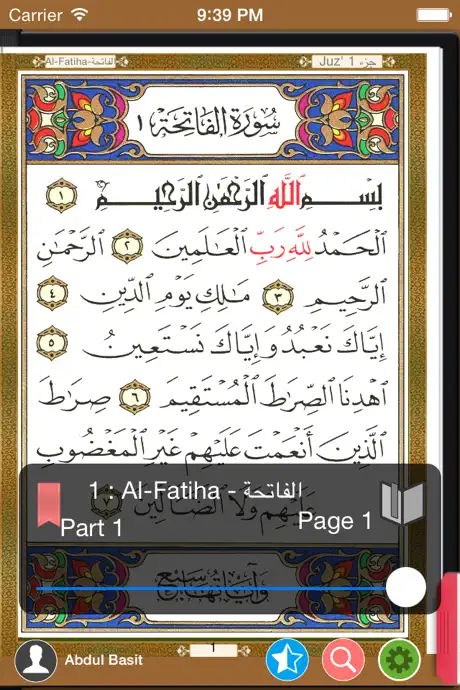 Carrier 9:39 PM
Al-Fatiha-الفاتحة Juz' 1 جزء
سُورَةُ الفَاتِحَةِ ١
بِسْمِ اللَّهِ الرَّحْمَٰنِ الرَّحِيمِ ١
الْحَمْدُ لِلَّهِ رَبِّ الْعَالَمِينَ ٢ الرَّحْمَٰنِ
الرَّحِيمِ ٣ مَالِكِ يَوْمِ الدِّينِ ٤
إِيَّاكَ نَعْبُدُ وَإِيَّاكَ نَسْتَعِينُ ٥
اهْدِنَا الصِّرَاطَ الْمُسْتَقِيمَ ٦ صِرَاطَ
الَّذِينَ أَنْعَمْتَ عَلَيْهِمْ غَيْرِ الْمَغْضُوبِ
عَلَيْهِمْ وَلَا الضَّالِّينَ ٧
1 : Al-Fatiha - الفاتحة
Part 1 Page 1
وَآيَاتُهَا سَبْعٌ
1
Abdul Basit